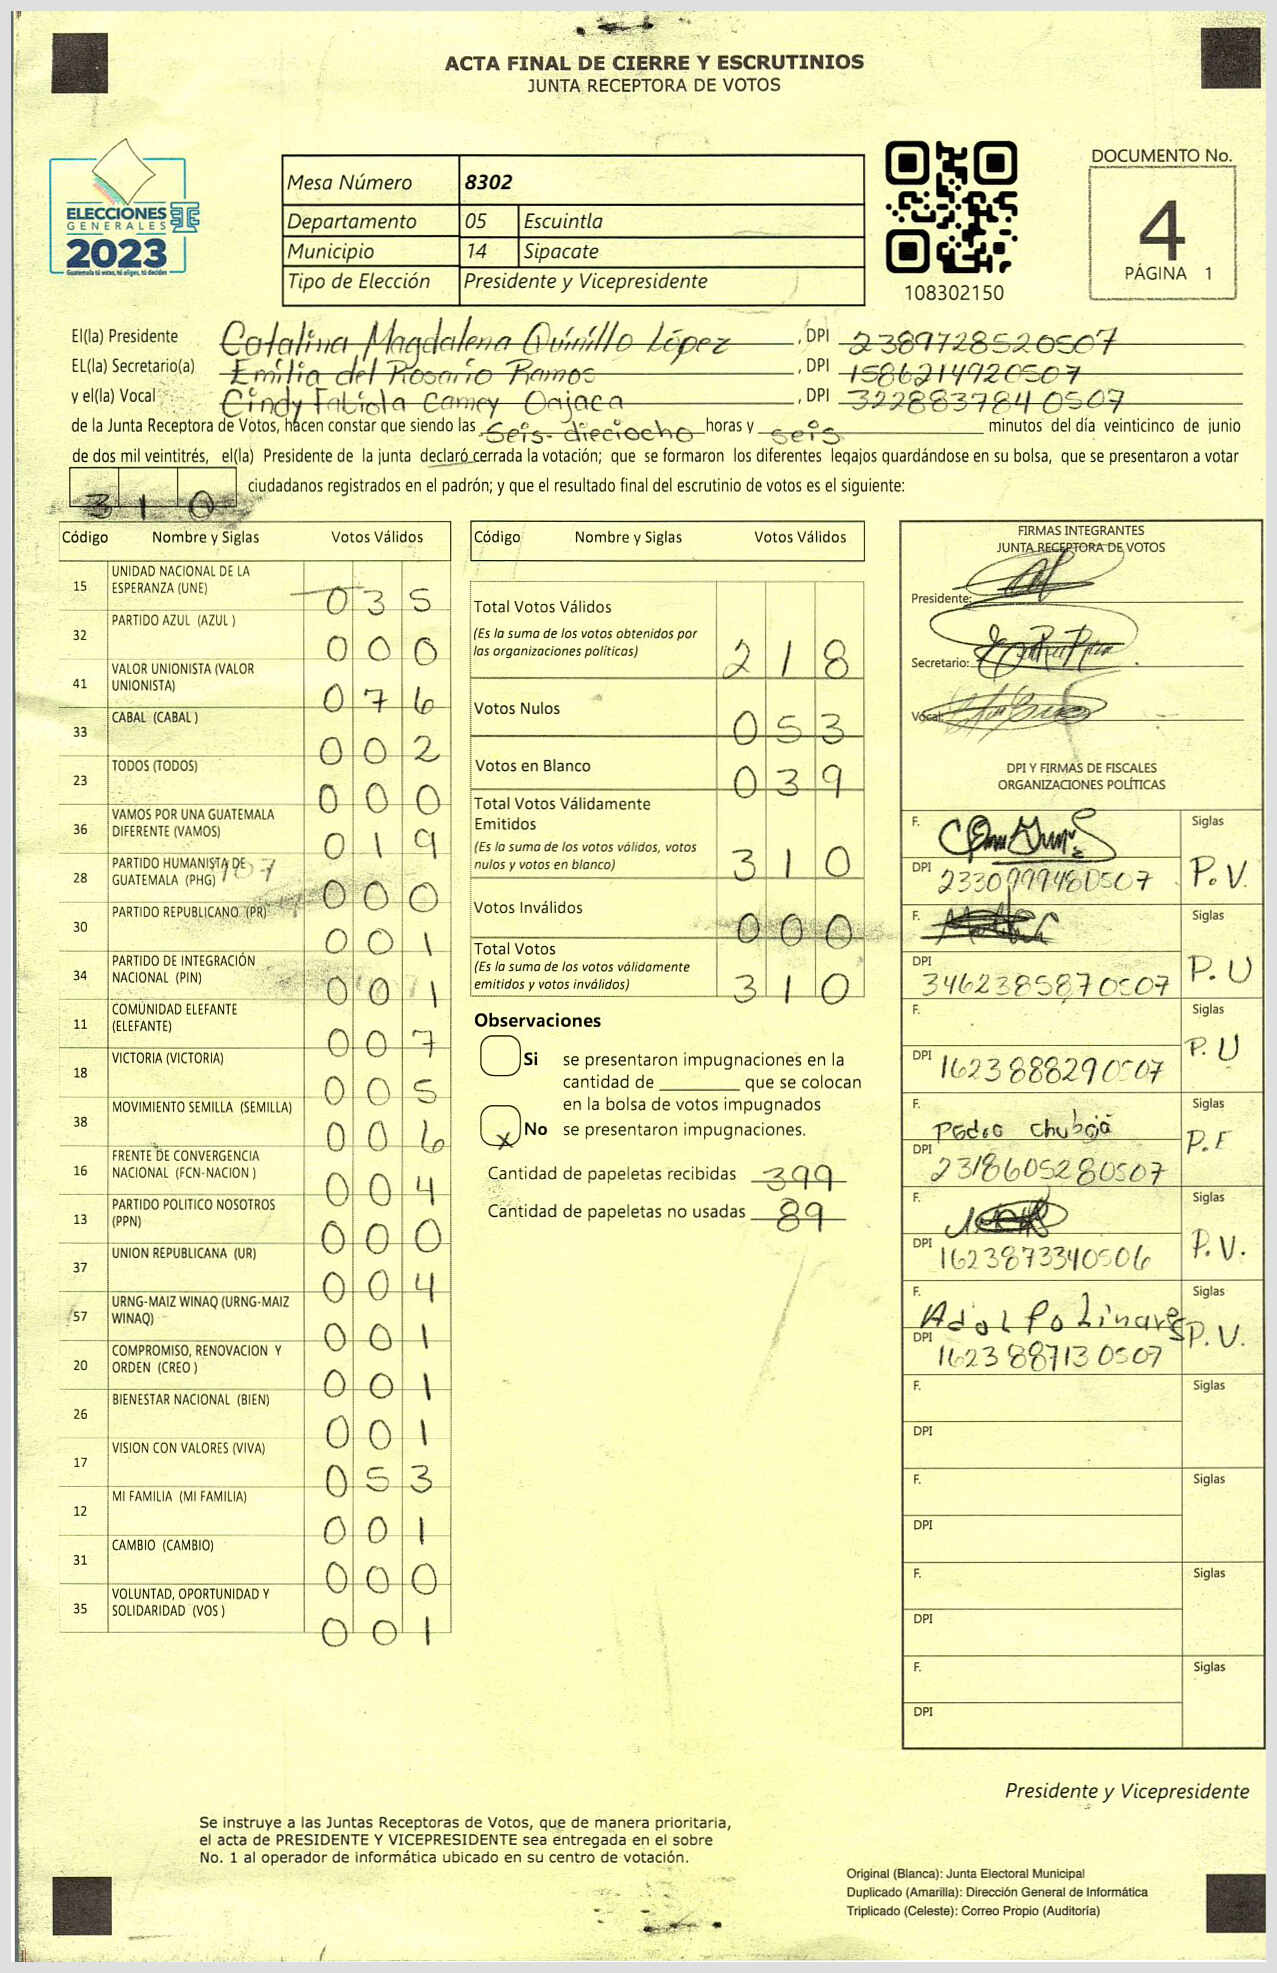 ACTA FINAL DE CIERRE Y ESCRUTINIOS
JUNTA RECEPTORA DE VOTOS
ELECCIONES
GENERALES
2023
Guatemala tú votas, tú eliges, tú decides
Mesa Número 8302
Departamento 05 Escuintla
Municipio 14 Sipacate
Tipo de Elección Presidente y Vicepresidente
108302150
DOCUMENTO No.
4
PÁGINA 1
El(la) Presidente Catalina Magdalena Quinillo López, DPI 2389728520507
EL(la) Secretario(a) Emilia del Rosario Ramos, DPI 1586214920507
y el(la) Vocal Cindy Fabiola Camey Oajaca, DPI 3228837840507
de la Junta Receptora de Votos, hacen constar que siendo las Seis-dieciocho horas y seis minutos del día veinticinco de junio
de dos mil veintitrés, el(la) Presidente de la junta declaró cerrada la votación; que se formaron los diferentes legajos guardándose en su bolsa, que se presentaron a votar
310 ciudadanos registrados en el padrón; y que el resultado final del escrutinio de votos es el siguiente:
Código Nombre y Siglas Votos Válidos
15 UNIDAD NACIONAL DE LA
ESPERANZA (UNE) 035
32 PARTIDO AZUL (AZUL ) 000
41 VALOR UNIONISTA (VALOR
UNIONISTA) 076
33 CABAL (CABAL ) 002
23 TODOS (TODOS) 000
36 VAMOS POR UNA GUATEMALA
DIFERENTE (VAMOS) 019
28 PARTIDO HUMANISTA DE
GUATEMALA (PHG) 000
30 PARTIDO REPUBLICANO (PR) 001
34 PARTIDO DE INTEGRACIÓN
NACIONAL (PIN) 001
11 COMUNIDAD ELEFANTE
(ELEFANTE) 007
18 VICTORIA (VICTORIA) 005
38 MOVIMIENTO SEMILLA (SEMILLA) 006
16 FRENTE DE CONVERGENCIA
NACIONAL (FCN-NACION ) 004
13 PARTIDO POLITICO NOSOTROS
(PPN) 000
37 UNION REPUBLICANA (UR) 004
57 URNG-MAIZ WINAQ (URNG-MAIZ
WINAQ) 001
20 COMPROMISO, RENOVACION Y
ORDEN (CREO ) 001
26 BIENESTAR NACIONAL (BIEN) 001
17 VISION CON VALORES (VIVA) 053
12 MI FAMILIA (MI FAMILIA) 001
31 CAMBIO (CAMBIO) 000
35 VOLUNTAD, OPORTUNIDAD Y
SOLIDARIDAD (VOS ) 001
Código Nombre y Siglas Votos Válidos
Total Votos Válidos
(Es la suma de los votos obtenidos por
las organizaciones políticas) 218
Votos Nulos 053
Votos en Blanco 039
Total Votos Válidamente
Emitidos
(Es la suma de los votos válidos, votos
nulos y votos en blanco) 310
Votos Inválidos 000
Total Votos
(Es la suma de los votos válidamente
emitidos y votos inválidos) 310
Observaciones
Si se presentaron impugnaciones en la
cantidad de ________ que se colocan
en la bolsa de votos impugnados
x No se presentaron impugnaciones.
Cantidad de papeletas recibidas 399
Cantidad de papeletas no usadas 89
FIRMAS INTEGRANTES
JUNTA RECEPTORA DE VOTOS
Presidente:
Secretario:
Vocal:
DPI Y FIRMAS DE FISCALES
ORGANIZACIONES POLÍTICAS
F. Siglas
DPI 2330999480507 P.V.
F. Siglas
DPI 3462385870507 P.U
F. Siglas
DPI 1623888290507 P.U
F. Pedro Chuboja Siglas
DPI 2318605280507 P.F
F. Siglas
DPI 1623873340506 P.V.
F. Adolfo Linares Siglas
DPI 1623887130507 P.V.
F. Siglas
DPI
F. Siglas
DPI
F. Siglas
DPI
F. Siglas
DPI
Presidente y Vicepresidente
Se instruye a las Juntas Receptoras de Votos, que de manera prioritaria,
el acta de PRESIDENTE Y VICEPRESIDENTE sea entregada en el sobre
No. 1 al operador de informática ubicado en su centro de votación.
Original (Blanca): Junta Electoral Municipal
Duplicado (Amarilla): Dirección General de Informática
Triplicado (Celeste): Correo Propio (Auditoría)